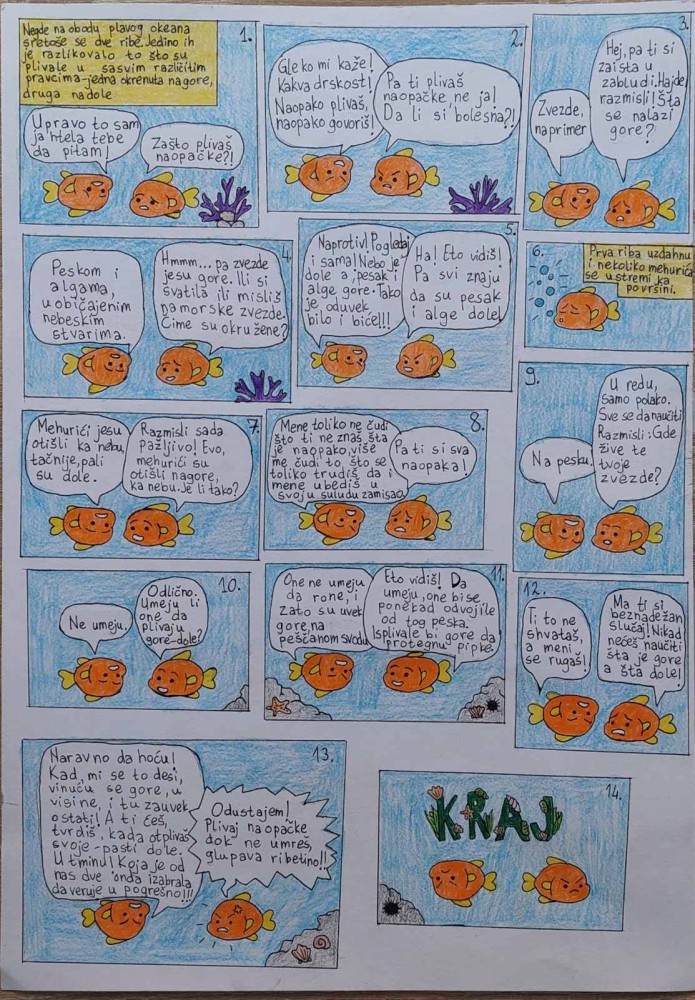 Negde na obodu plavog okeana
sretoše se dve ribe. Jedino ih
je razlikovalo to što su
plivale u sasvim različitim
pravcima-jedna okrenuta nagore,
druga nadole
1.
Upravo to sam
ja htela tebe
da pitam!
Zašto plivaš
naopačke?!
2.
Gle ko mi kaže!
Kakva drskost!
Naopako plivaš,
naopako govoriš!
Pa ti plivaš
naopačke, ne ja!
Da li si bolesna?!
3.
Zvezde,
naprimer
Hej, pa ti si
zaista u
zabludi. Hajde
razmisli! Šta
se nalazi
gore?
4.
Peskom i
algama,
uobičajenim
nebeskim
stvarima.
Hmmm... pa zvezde
jesu gore. Ili si
svatila ili misliš
na morske zvezde.
Čime su okružene?
5.
Naprotiv! Pogledaj
i sama! Nebo je
dole a, pesak i
alge gore. Tako
je oduvek
bilo i biće!!!
Ha! Eto vidiš!
Pa svi znaju
da su pesak
i alge dole!
6.
Prva riba uzdahnu
i nekoliko mehurića
se ustremi ka
površini.
7.
Mehurići jesu
otišli ka nebu,
tačnije, pali
su dole.
Razmisli sada
pažljivo! Evo,
mehurići su
otišli nagore,
ka nebu. Je li tako?
8.
Mene toliko ne čudi
što ti ne znaš šta
je naopako, više
me čudi to što se
toliko trudiš da i
mene ubediš u
svoju suludu zamisao
Pa ti si sva
naopaka!
9.
Na pesku.
U redu,
samo polako.
Sve se da naučiti
Razmisli: Gde
žive te
tvoje
zvezde?
10.
Ne umeju.
Odlično.
Umeju li
one da
plivaju
gore-dole?
11.
One ne umeju
da rone, i
zato su uvek
gore, na
peščanom svodu
Eto vidiš! Da
umeju, one bi se
ponekad odvojile
od tog peska.
Isplivale bi gore da
protegnu pipke.
12.
Ti to ne
shvataš,
a meni
se rugaš!
Ma ti si
beznadežan
slučaj! Nikad
nećeš naučiti
šta je gore
a šta dole!
13.
Naravno da hoću!
Kad, mi se to desi,
vinuću se gore, u
visine, i tu zauvek
ostati! A ti ćeš,
tvrdiš, kada otplivaš
svoje - pasti dole.
U tminu! Koja je od
nas dve onda izabrala
da veruje u pogrešno!!!
Odustajem!
Plivaj naopačke
dok ne umreš,
glupava ribetino!!
14.
KRAJ